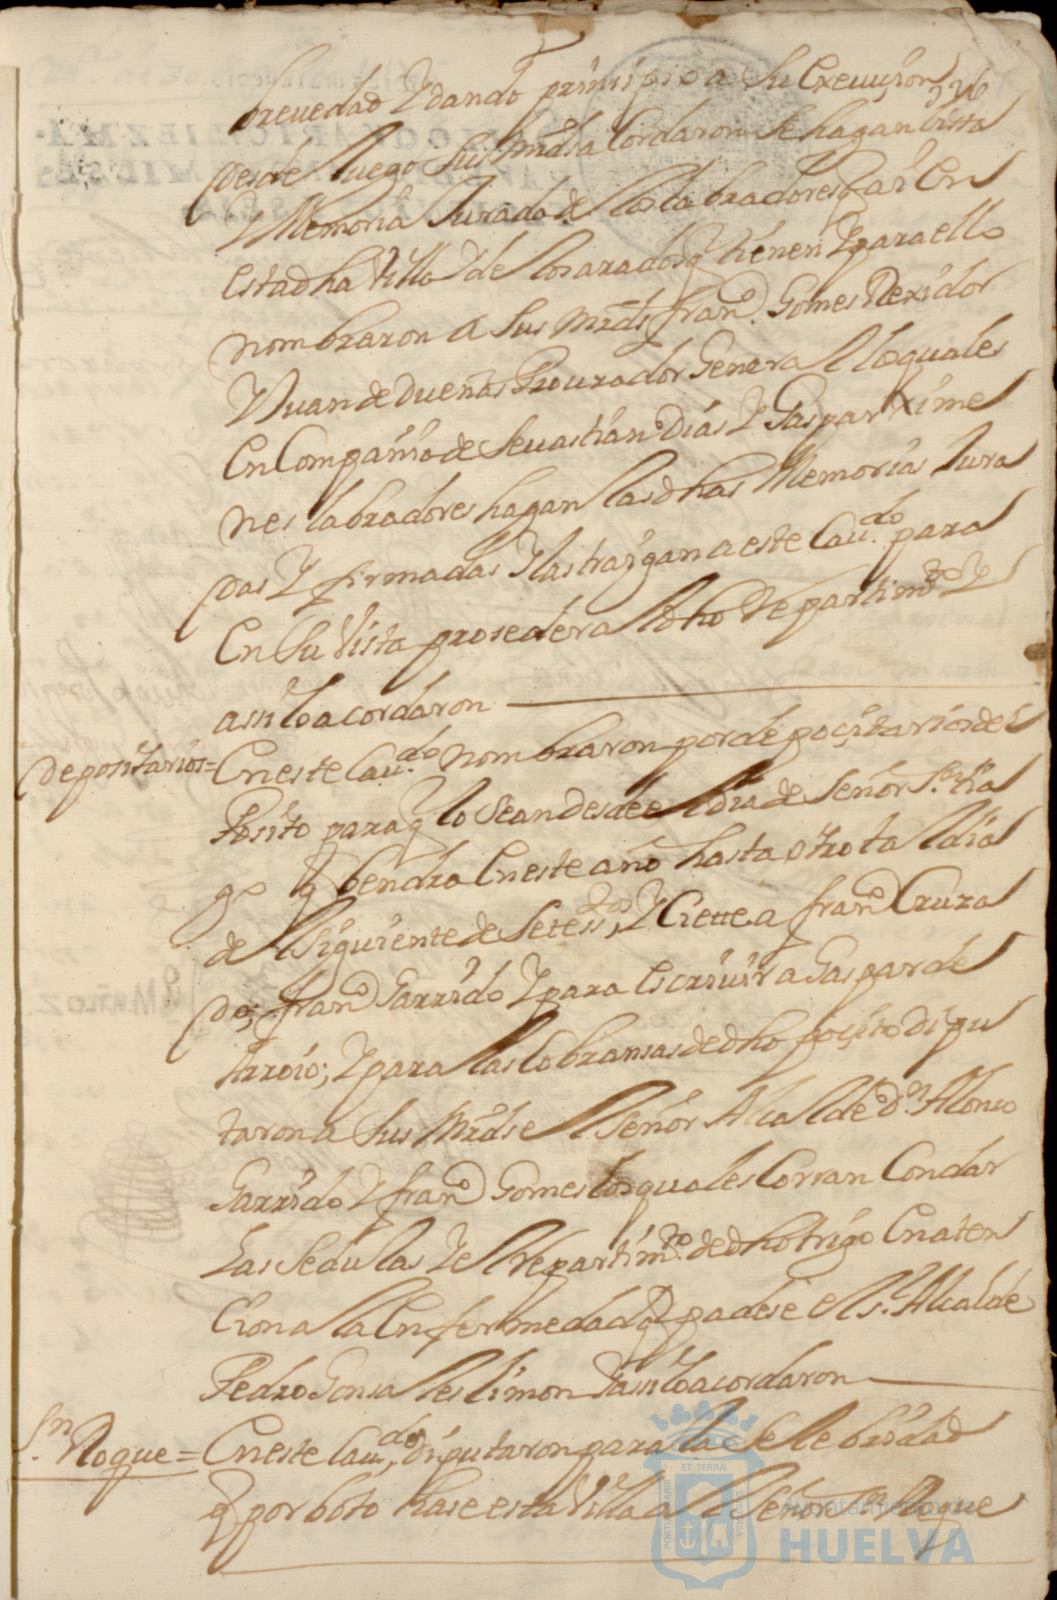 brevedad Y dando prinsipio a Su Execuçion
326
desde luego Sus Mrds acordaron Se hagan lista
Y Memoria Jurada de los labradores q ai En
esta dha Villa Y de los arados q tienen Y para ello
nombraron a Sus Mrds franco. Gomes Rexidor
Y Juan de Dueñas Procurador General los quales
En Compañia de Sevastian Dias Y Gaspar Xime
nes labradores hagan las dhas Memorias Jura
das Y firmadas Y las traigan a este Caudo. para
En Su Vista proseder al dho Repartimto Y
assi lo acordaron
Depositarios = En este Caudo. nombraron por depoçitarios del
Posito para q lo Sean desde el dia de Señor Sn tia
go q bendra En este año hasta otro tal dia
de el Siguiente de Setesstos Y Ciette a franco Cruza
do, franco Garrido Y para Escriuir a Gaspar de
Arroio; Y para las Cobransas de dho poçito Dipu
taron a Sus Mrds el Señor Alcalde Dn Alonso
Garrido Y franco Gomes los quales Corran Con dar
Las Sedulas Y el Repartimto. de dho trigo En aten
Cion a la Enfermedad q padese el Sr. Alcalde
Pedro Gonsales limon Y assi lo acordaron
Sn. Roque = En este Caudo, diputaron para la Selebridad
q por boto hase esta Villa al Señor Sn Roque
ET TERRÆ
Ayuntamiento de
HUELVA